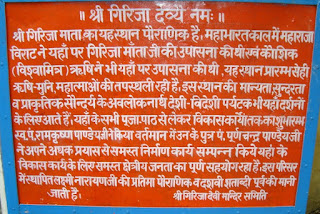 ॥ श्री गिरिजा देव्यै नमः ॥
श्री गिरिजा माता का यह स्थान पौराणिक है, महाभारत काल में महाराजा
विराट ने यहाँ पर गिरिजा माता जी की उपासना की थी एवं कौशिक
(विश्वामित्र) ऋषि ने भी यहाँ पर उपासना की थी, यह स्थान प्रारम्भ से ही
ऋषि-मुनि, महात्माओं की तपस्थली रही है, इस स्थान की मान्यता, सुन्दरता
व प्राकृतिक सौन्दर्य के अवलोकनार्थ देशी-विदेशी पर्यटक भी यहाँ दर्शनों
के लिए आते हैं, यहाँ के सभी पूजा-पाठ से लेकर विकास कार्य तक का शुभारम्भ
स्व. पं. रामकृष्ण पाण्डे जी ने किया वर्तमान में उनके पुत्र पं. पूर्ण चन्द्र पाण्डे जी
ने अपने अथक प्रयास से समस्त निर्माण कार्य सम्पन्न किये यहां के
विकास कार्य के लिए समस्त क्षेत्रीय जनता का पूर्ण सहयोग रहा है, इस परिसर
में स्थापित लक्ष्मी नारायण जी की प्रतिमा पौराणिक व दशवीं शताब्दी पूर्व की मानी
जाती है।
श्री गिरिजा देवी मन्दिर समिति